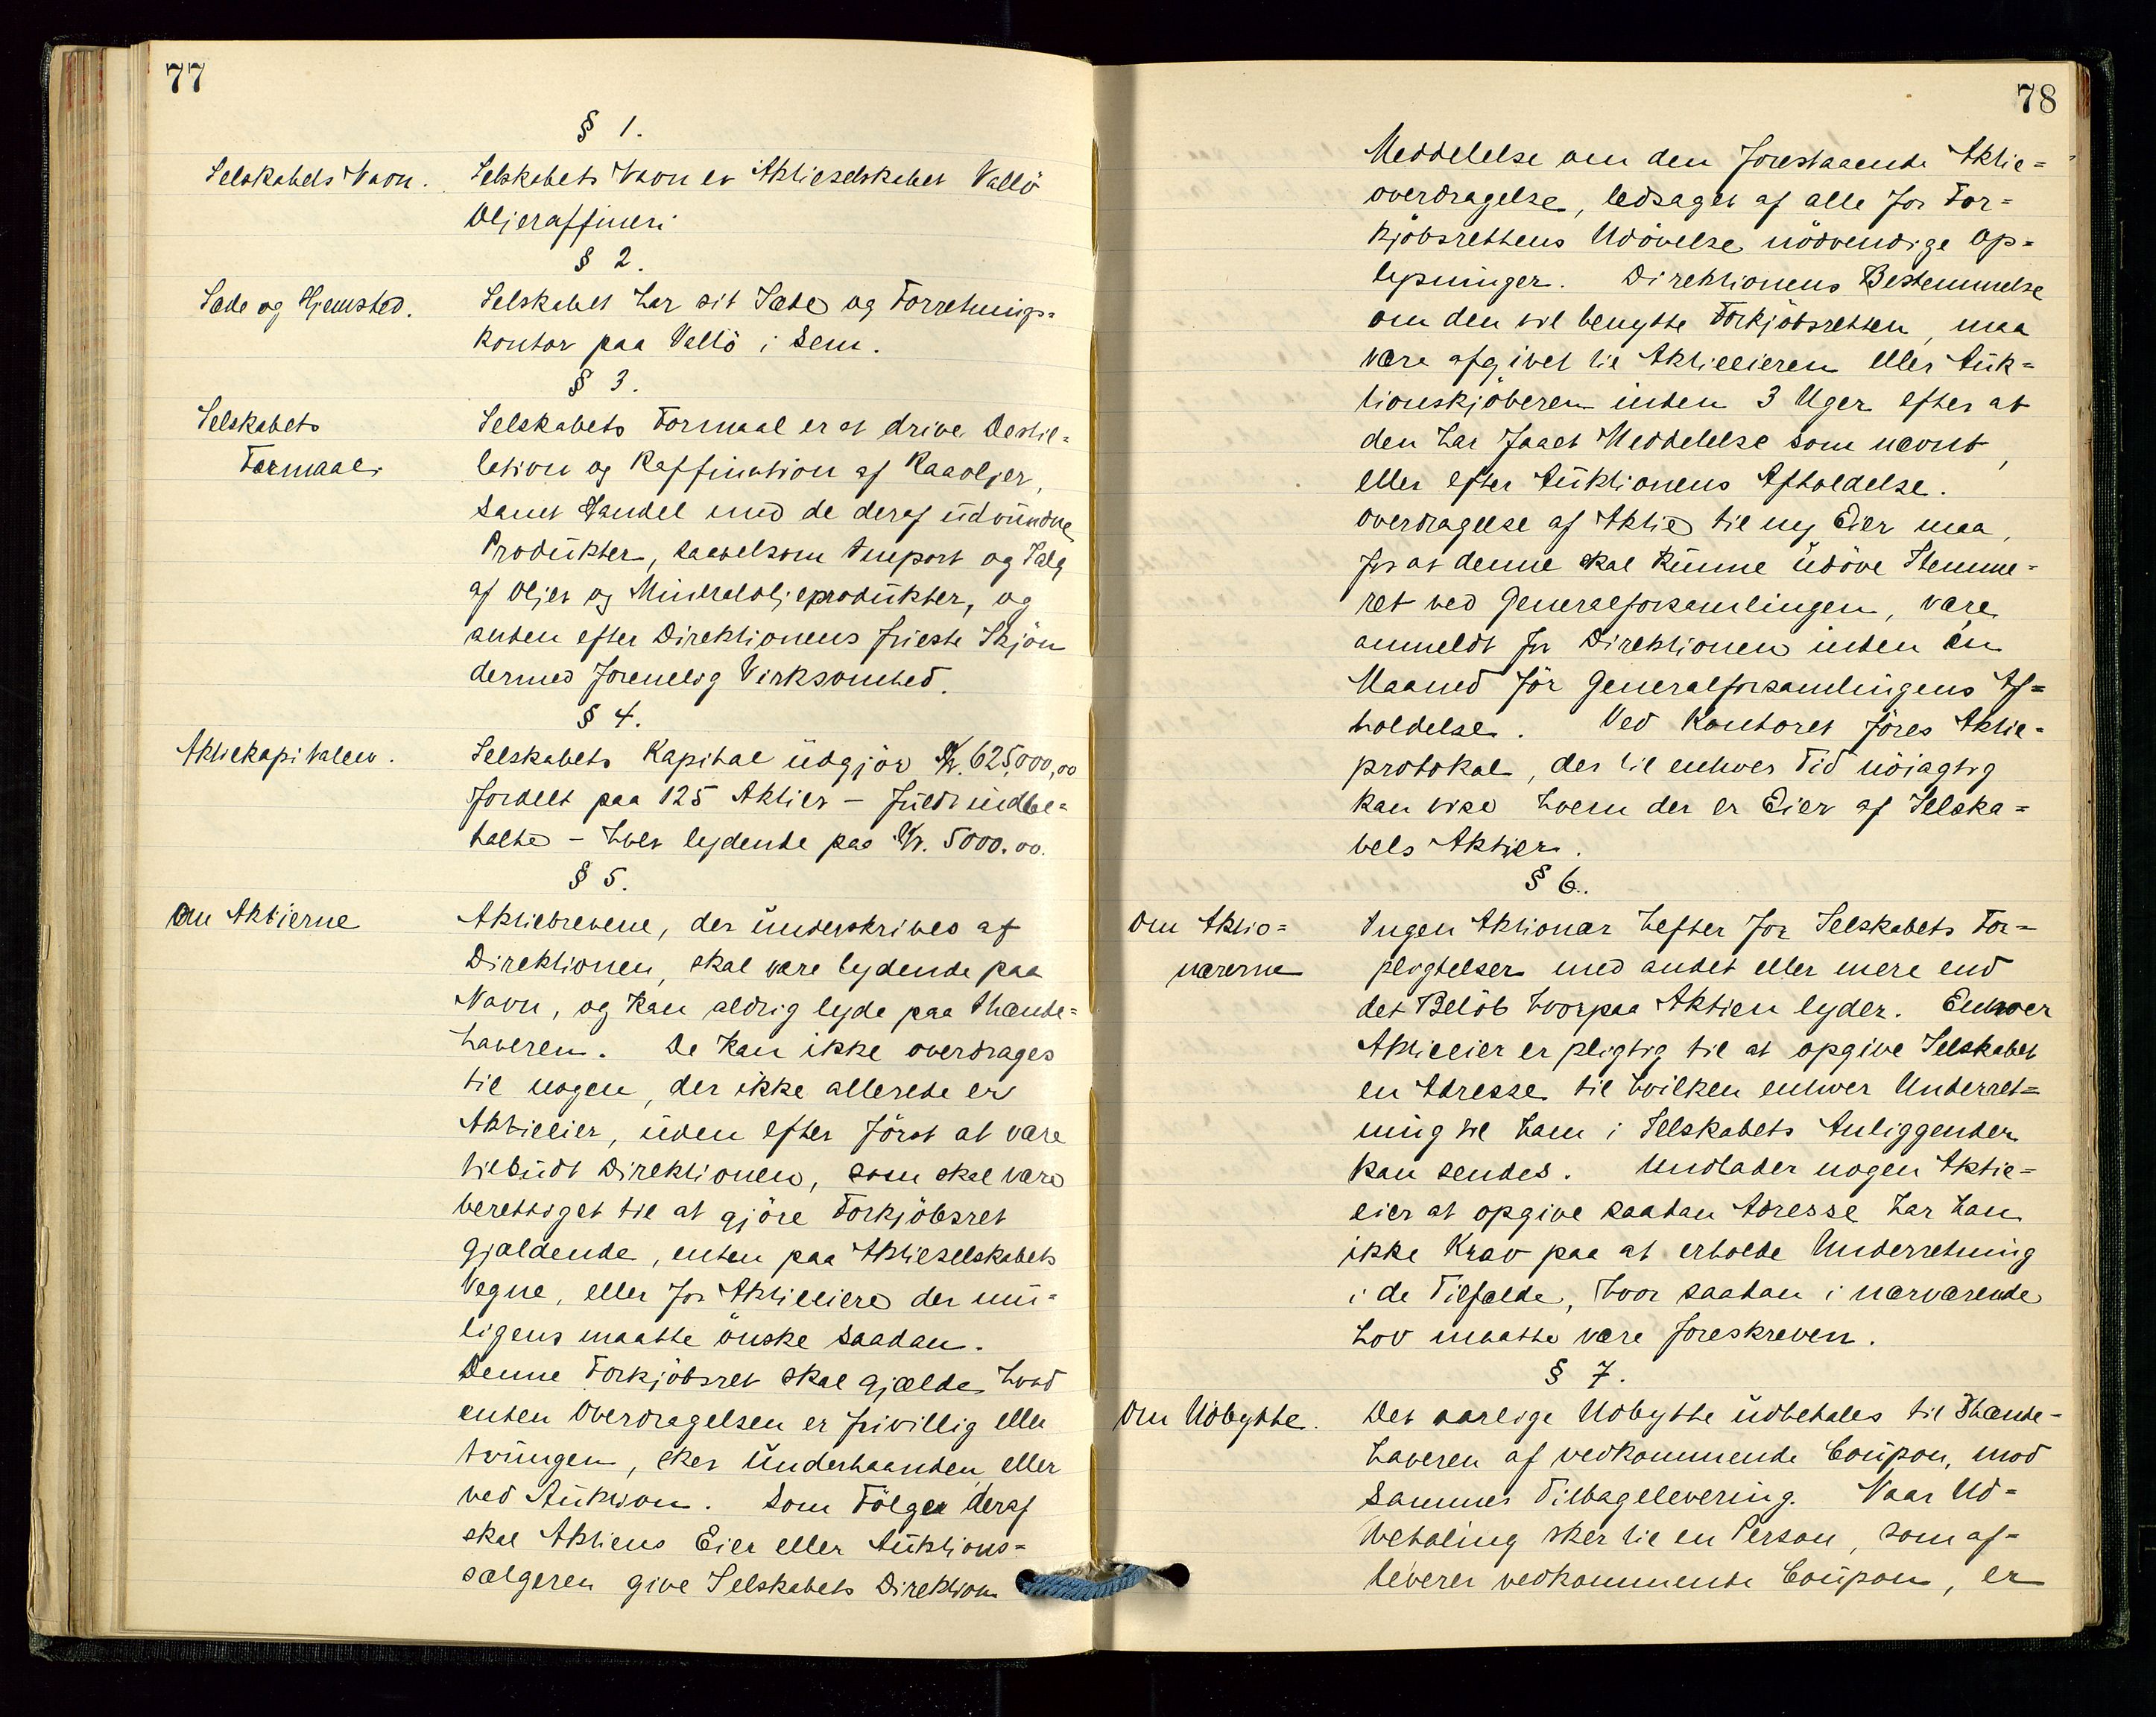 77
§ 1.
Selskabets Navn. Selskabets Navn er Aktieselskabet Vallö
Oljeraffineri
§ 2.
Sæde og Hjemsted. Selskabet har sit Sæde og Forretnings=
kontor paa Vallö i Sem.
§ 3.
Selskabets Selskabets Formaal er at drive Destil=
Formaal. lation og Raffination af Raaoljer,
samt Handel med de deraf udvundne
Produkter, saavelsom Import og Salg
af Oljer og Mineraloljeprodukter, og
anden efter Direktionens frieste Skjön
dermed forenelig Virksomhed.
§ 4.
Aktiekapitalen. Selskabets Kapital udgjör Kr. 625,000,00
fordelt paa 125 Aktier – fuldt indbe=
talte – hver lydende paa Kr. 5000.00.
§ 5.
Om Aktierne Aktiebrevene, der underskrives af
Direktionen, skal være lydende paa
Navn, og kan aldrig lyde paa Ihænde=
haveren. De kan ikke overdrages
til nogen, der ikke allerede er
Aktieeier, uden efter först at være
tilbudt Direktionen, som skal være
berettiget til at gjöre Forkjöbsret
gjældende, enten paa Aktieselskabets
Vegne, eller for Aktieeiere der mu=
ligens maatte önske saadan.
Denne Forkjöbsret skal gjælde, hvad
enten Overdragelsen er frivillig eller
tvungen, sker underhaanden eller
ved Auktion. Som Fölge deraf
skal Aktiens Eier eller Auktions=
sælgeren give Selskabets Direktion
78
Meddelelse om den forestaaende Aktie=
overdragelse, ledsaget af alle for For=
kjöbsrettens Udövelse nödvendige Op=
lysninger. Direktionens Bestemmelse
om den vil benytte Forkjöbsretten, maa
være afgivet til Aktieeieren eller Auk=
tionskjöberen inden 3 Uger efter at
den har faaet Meddelelse som nævnt,
eller efter Auktionens Afholdelse.
Overdragelse af Aktie til ny Eier maa,
for at denne skal kunne udöve Stemme=
ret ved Generalforsamlingen, være
anmeldt for Direktionen inden én
Maaned för Generalforsamlingens Af=
holdelse. Ved Kontoret föres Aktie=
protokol, der til enhver Tid nöiagtig
kan vise hvem der er Eier af Selska=
bets Aktier.
§ 6.
Om Aktio= Ingen Aktionær hefter for Selskabets For=
nærerne pligtelser med andet eller mere end
det Belöb hvorpaa Aktien lyder. Enhver
Aktieeier er pligtig til at opgive Selskabet
en Adresse til hvilken enhver Underret=
ning til ham i Selskabets Anliggender
kan sendes. Undlader nogen Aktie=
eier at opgive saadan Adresse har han
ikke Krav paa at erholde Underretning
i de Tilfælde, hvor saadan i nærværende
Lov maatte være foreskreven.
§ 7.
Om Udbytte. Det aarlige Udbytte udbetales til Ihænde=
haveren af vedkommende Coupon, mod
sammes Tilbagelevering. Naar Ud=
betaling sker til en Person, som af=
leverer vedkommende Coupon, er